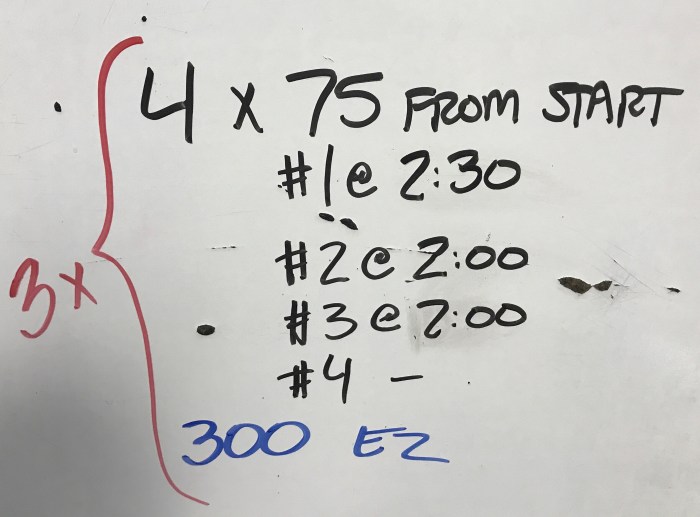 4 x 75 FROM START
#1 @ 2:30
#2 @ 2:00
3x
#3 @ 2:00
#4 -
300 EZ